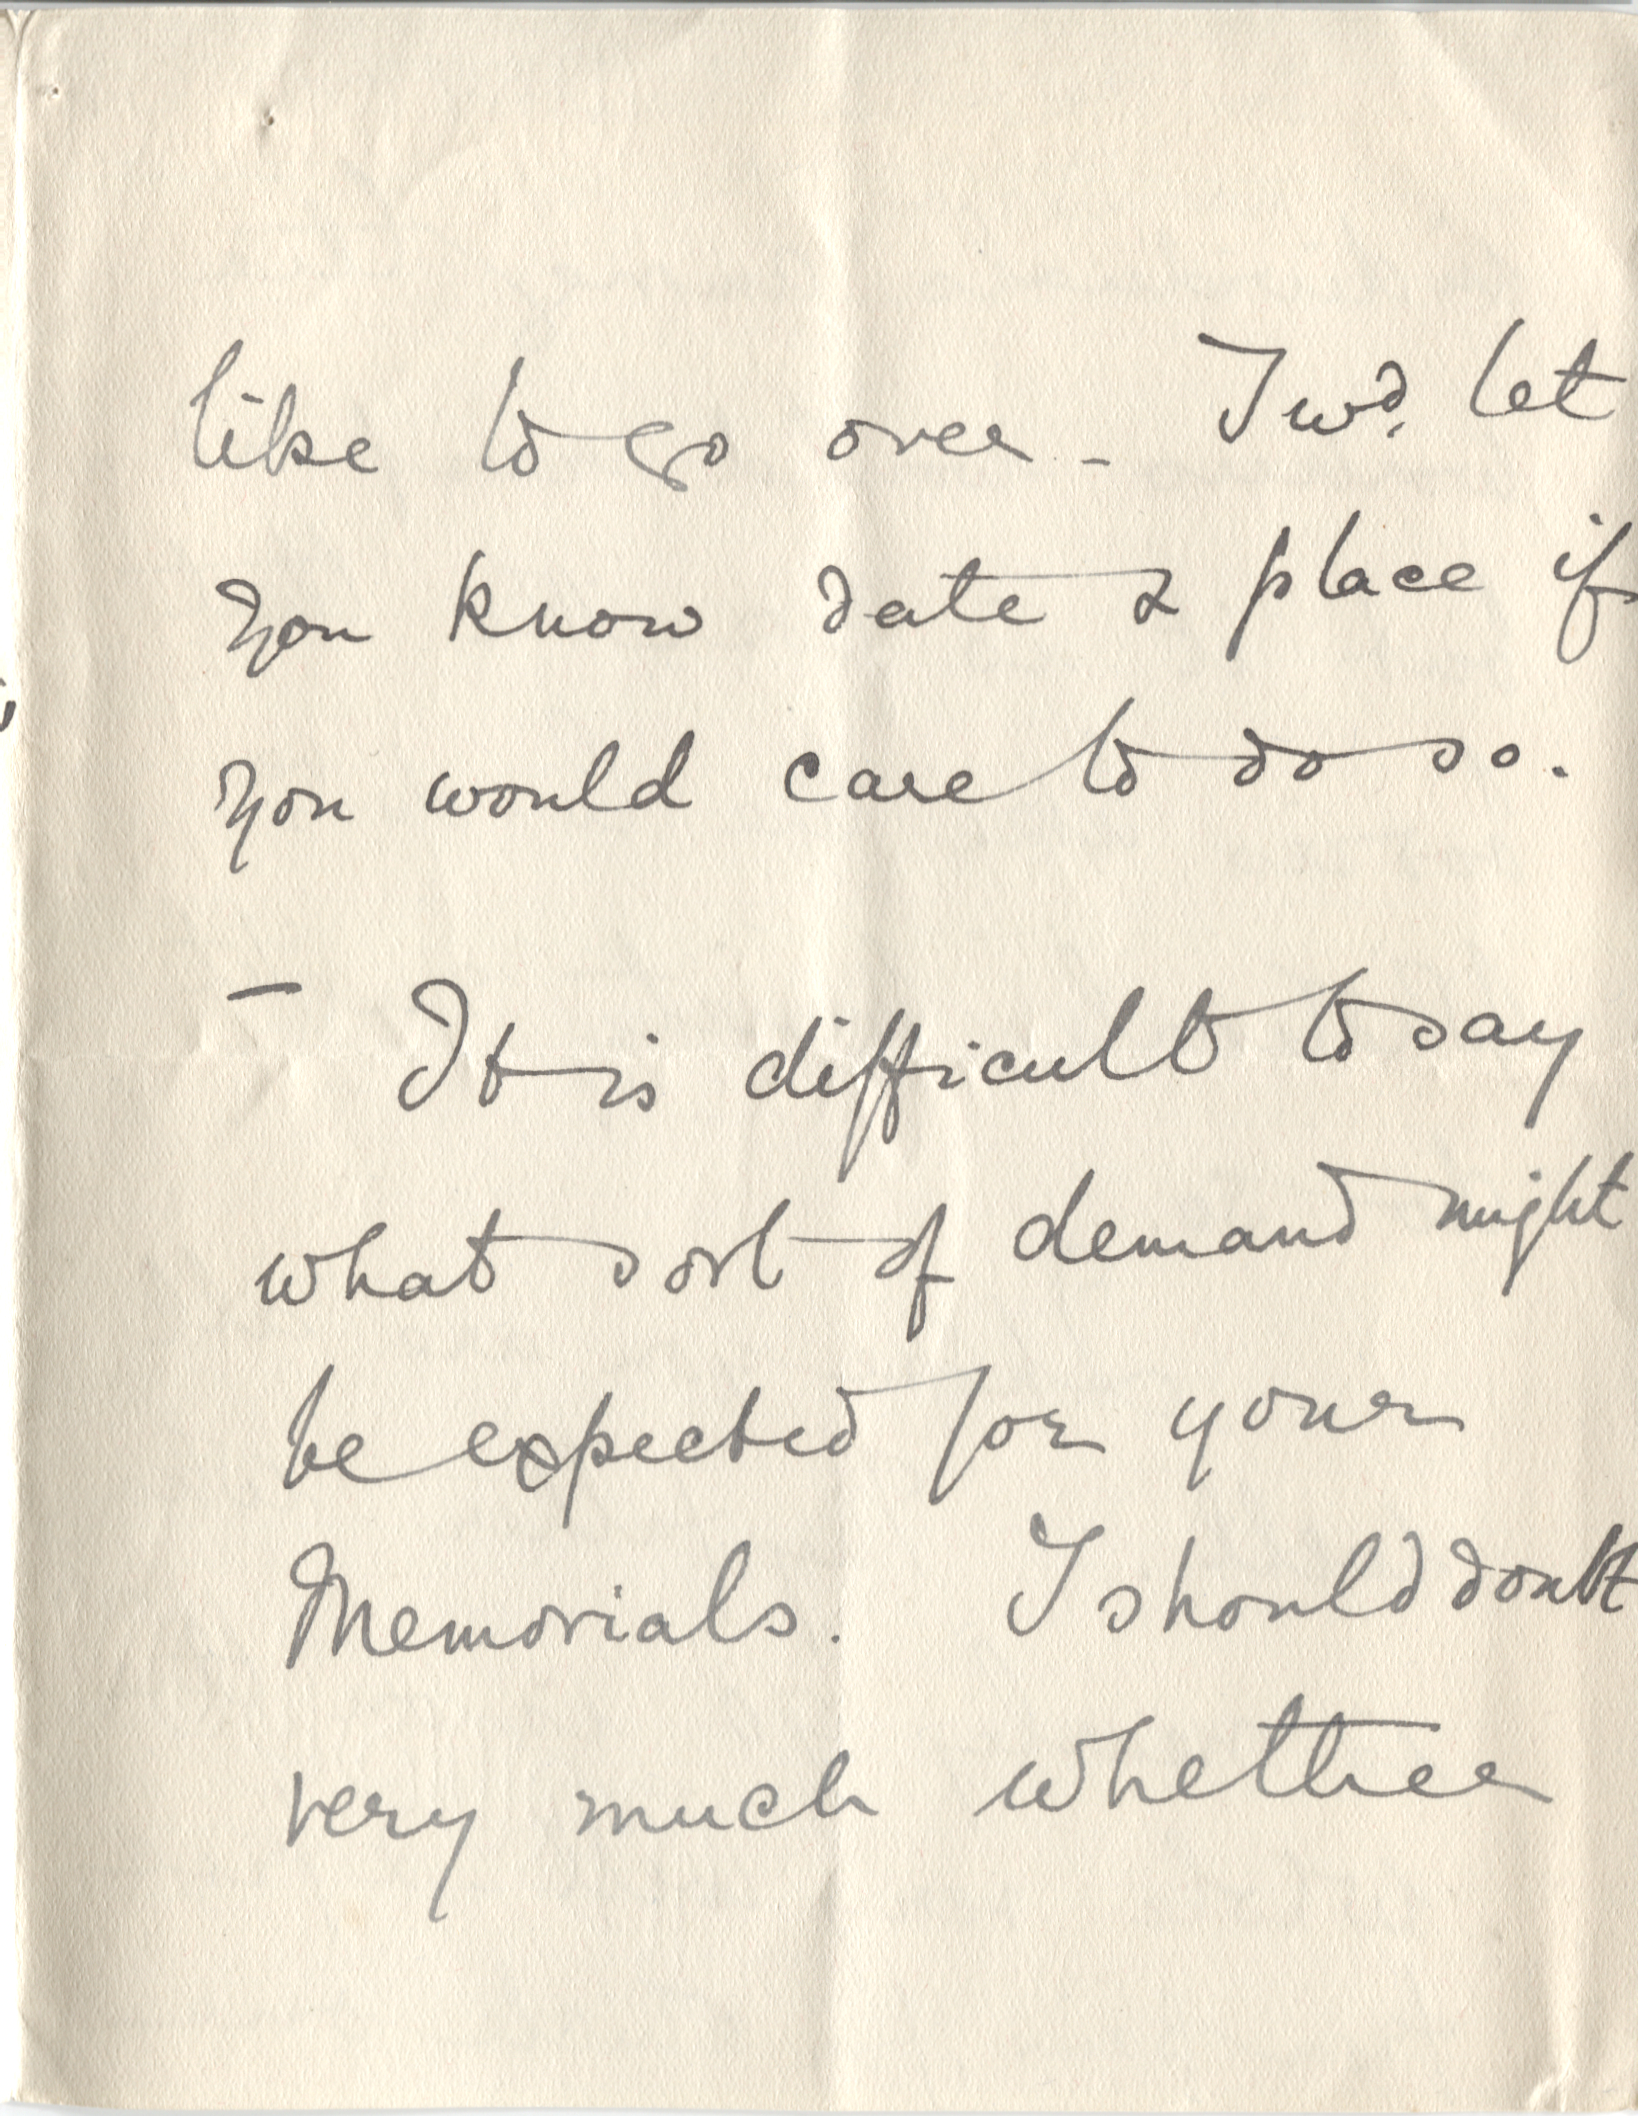 like to go over - I wd. let
you know date & place if
you would care to do so.
- It is difficult to say
what sort of demand might
be expected for your
Memorials. I should doubt
very much whether